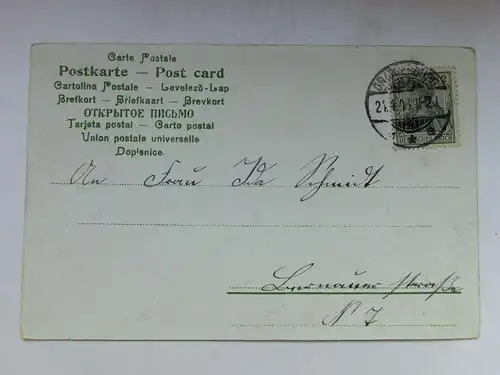 Carte Postale
Postkarte — Post card
Cartolina Postale — Levelező-Lap
Brefkort — Briefkaart — Brevkort
ОТКРЫТОЕ ПИСЬМО
Tarjeta postal — Carto postal
Union postale universelle
Dopisnice.
An Frau Ida Schmidt
Bernauer Strasse
N 7